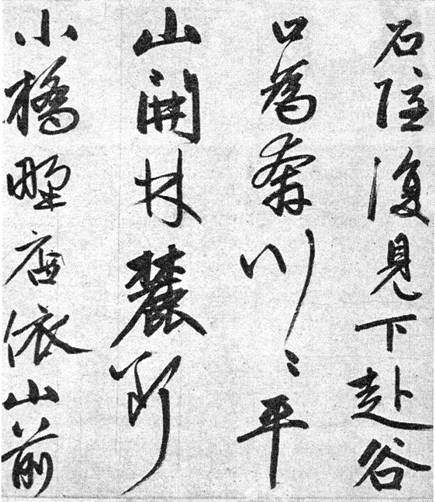 石隱復見下赴谷
口為奔川〻平
山開林麓斷
小橋野店依山前